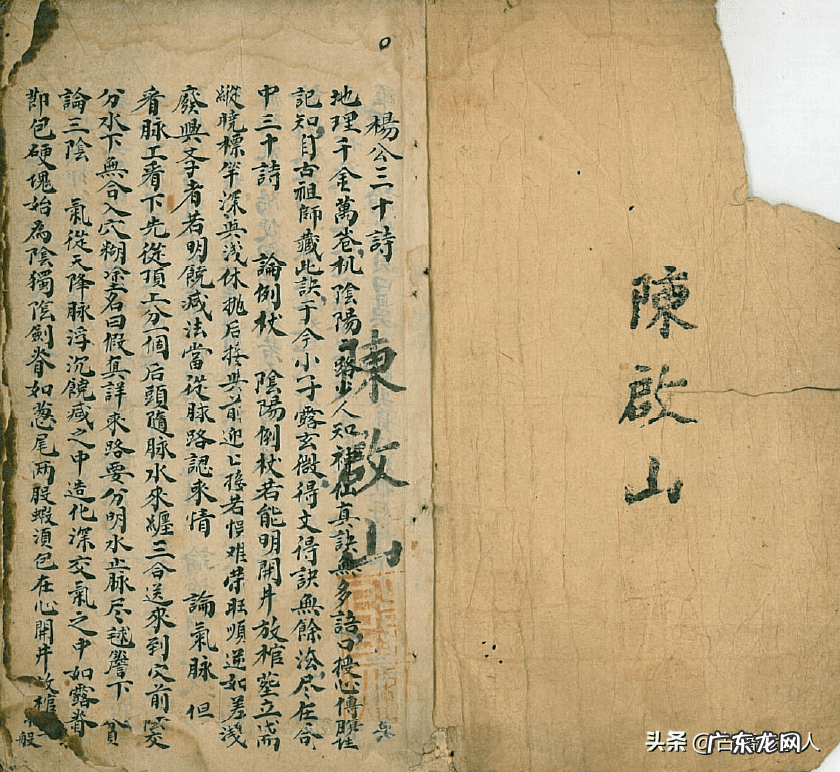 陳啟山
楊公三十詩
地理千金萬卷机陰陽路少人知神仙真訣無多語口授心傳
記知自古祖師藏此訣于今小子露玄微得文得訣無餘法尽在
中三十詩 論倒杖 陰陽倒杖若能明開井放棺塟立
縱曉標竿深與浅休抛后接與前迎上接若悮难荣旺順逆如差浅
廢興孝者若明饒减法當從脉路認来情 論氣脉 但
看脉工看下先從頂上分一個后頭隨脉水来纏三合送来到穴前
分水下無合入穴糊塗名曰假真詳来路要分明水止脉尽毬簷下
論三陰 氣從天降脉浮沉饒减之中造化深交氣之中如露脊
即包硬塊始為陰獨陰剑脊如葱尾两股蝦湏包在心開井放棺一般
陳啟山
头条 @广东龙网人